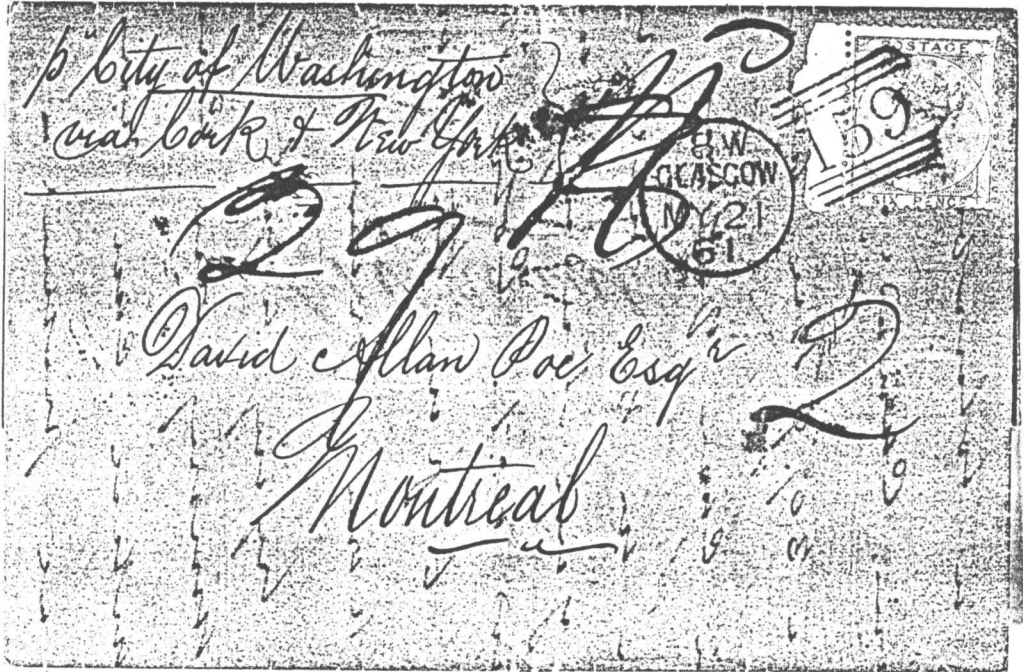 p City of Washington
via Cork & New York
POSTAGE
159
SIX PENCE
8 W
GLASGOW
MY 21
61
29
David Allan Poe Esqr
2
Montreal